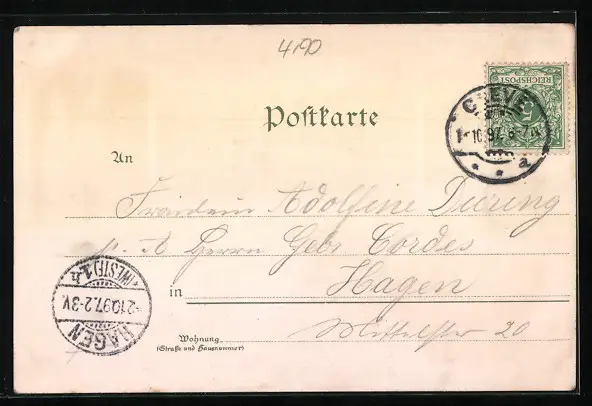 4190
REICHSPOST
5
CLEVE
1 10 97 6-7N
* * a
Postkarte
An
Fräulein Adolfine Düring
p. A Herrn Gebr Cordes
in Hagen
Mittelstr 20
Wohnung
(Straße und Hausnummer)
HAGEN
2 10 97. 2-3V
(WESTF) 1. h